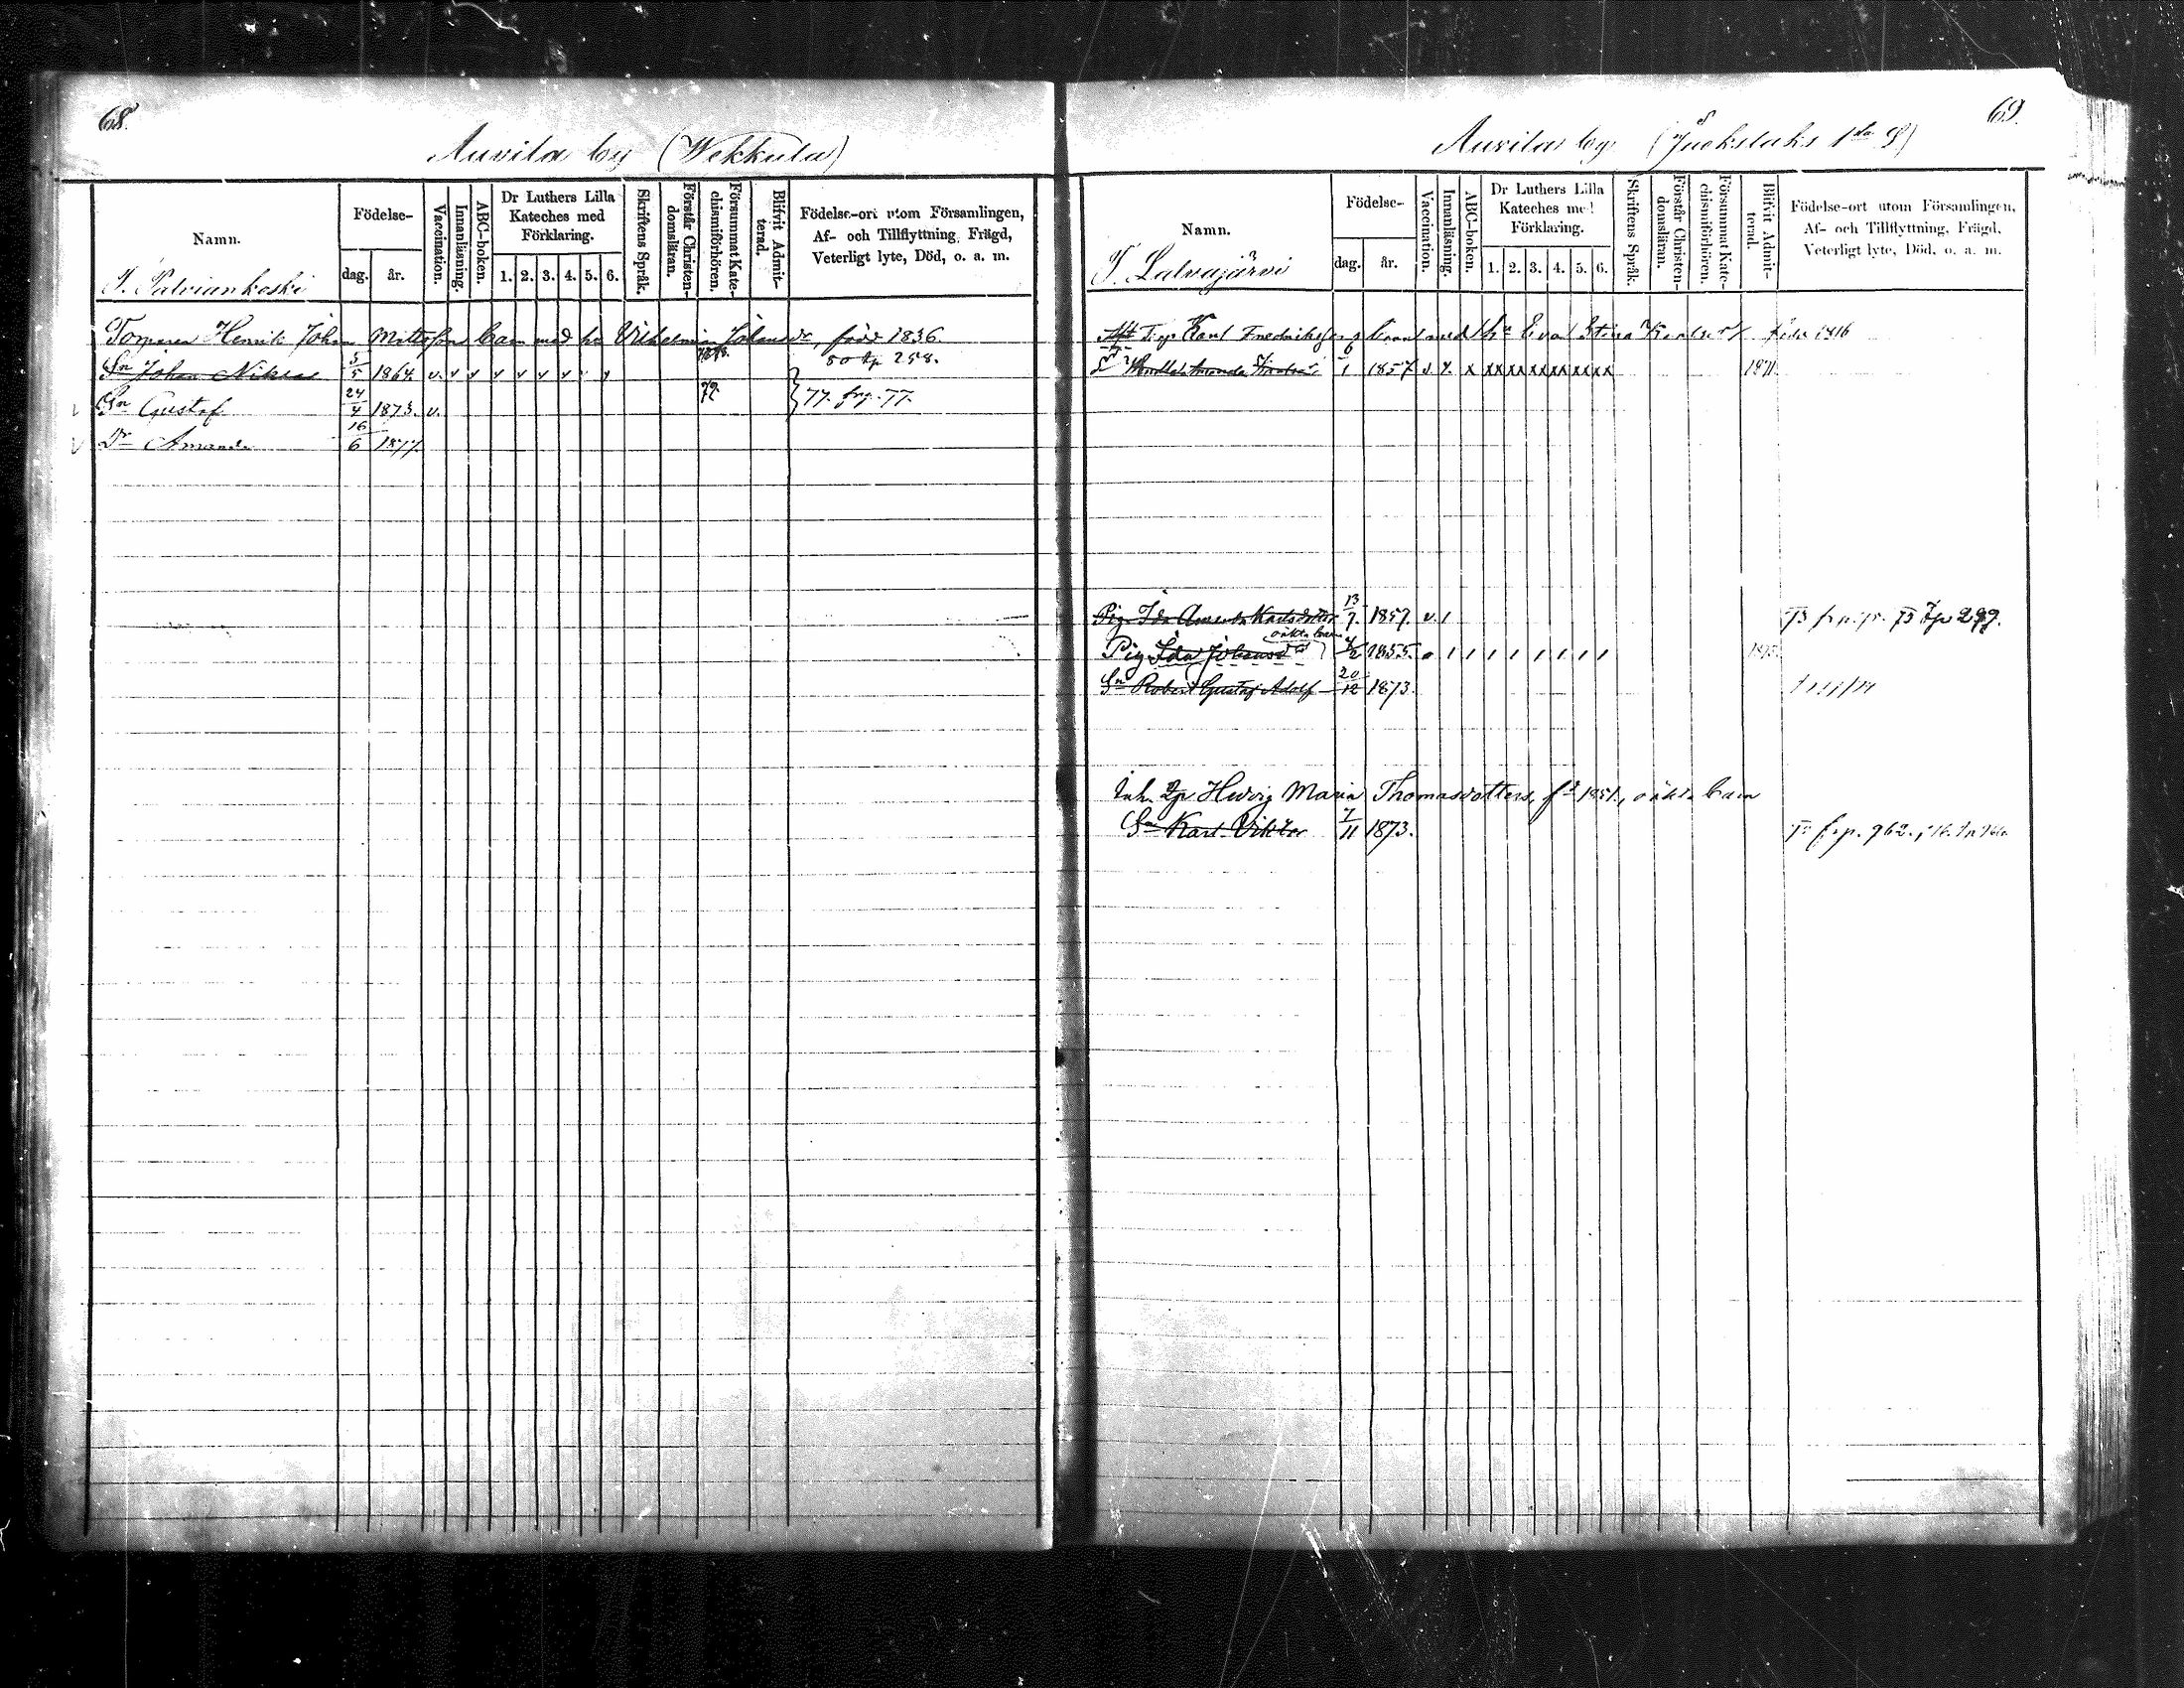 68.
Auvila by (Wekkula)
Namn.
Födelse-
dag.
år.
Vaccination.
Innanläsning.
ABC-boken.
Dr Luthers Lilla
Kateches med
Förklaring.
1. 2. 3. 4. 5. 6.
Skriftens Språk.
Förstår Christen-
domsläran.
Försummat Kate-
chismiförhören.
Blifvit Admit-
terad.
Födelse-ort utom Församlingen,
Af- och Tillflyttning, Frägd,
Veterligt lyte, Död, o. a. m.
T. Palviankoski
Torparen Henrik Johan Mattsson barn med hu Vilhelmina, född 1836.
Sn Johan 3/5 1864. v. v v v v v v v 80 tp 258.
Sn Gustaf 24/4 1873. v. 77. frp. 77.
Dr Amanda 16/6 1877.
69.
Auvila by (Juokslaks 1sta S)
Namn.
Födelse-
dag.
år.
Vaccination.
Innanläsning.
ABC-boken.
Dr Luthers Lilla
Kateches med
Förklaring.
1. 2. 3. 4. 5. 6.
Skriftens Språk.
Förstår Christen-
domsläran.
Försummat Kate-
chismiförhören.
Blifvit Admit-
terad.
Födelse-ort utom Församlingen,
Af- och Tillflyttning, Frägd,
Veterligt lyte, Död, o. a. m.
T. Latvajärvi
Karl Fredriksson barn med hu Eva Stina född 1816
Amanda 6/1 1857 v. x x xx xx xx xx xx xx 1871
Pig. Ida Amanda Karlsdotter 13/7. 1857. v. 1 75 tp 297.
oäkta barn
Pig Ida Johansdr 4/2 1855. 1873.
Sn Robert Gustaf Adolf 20/12 1873.
Inh. Dr Hedvig Maria Thomasdotters, fd 1851., oäkta barn
Sn Karl Viktor 7/11 1873. frp. 962.